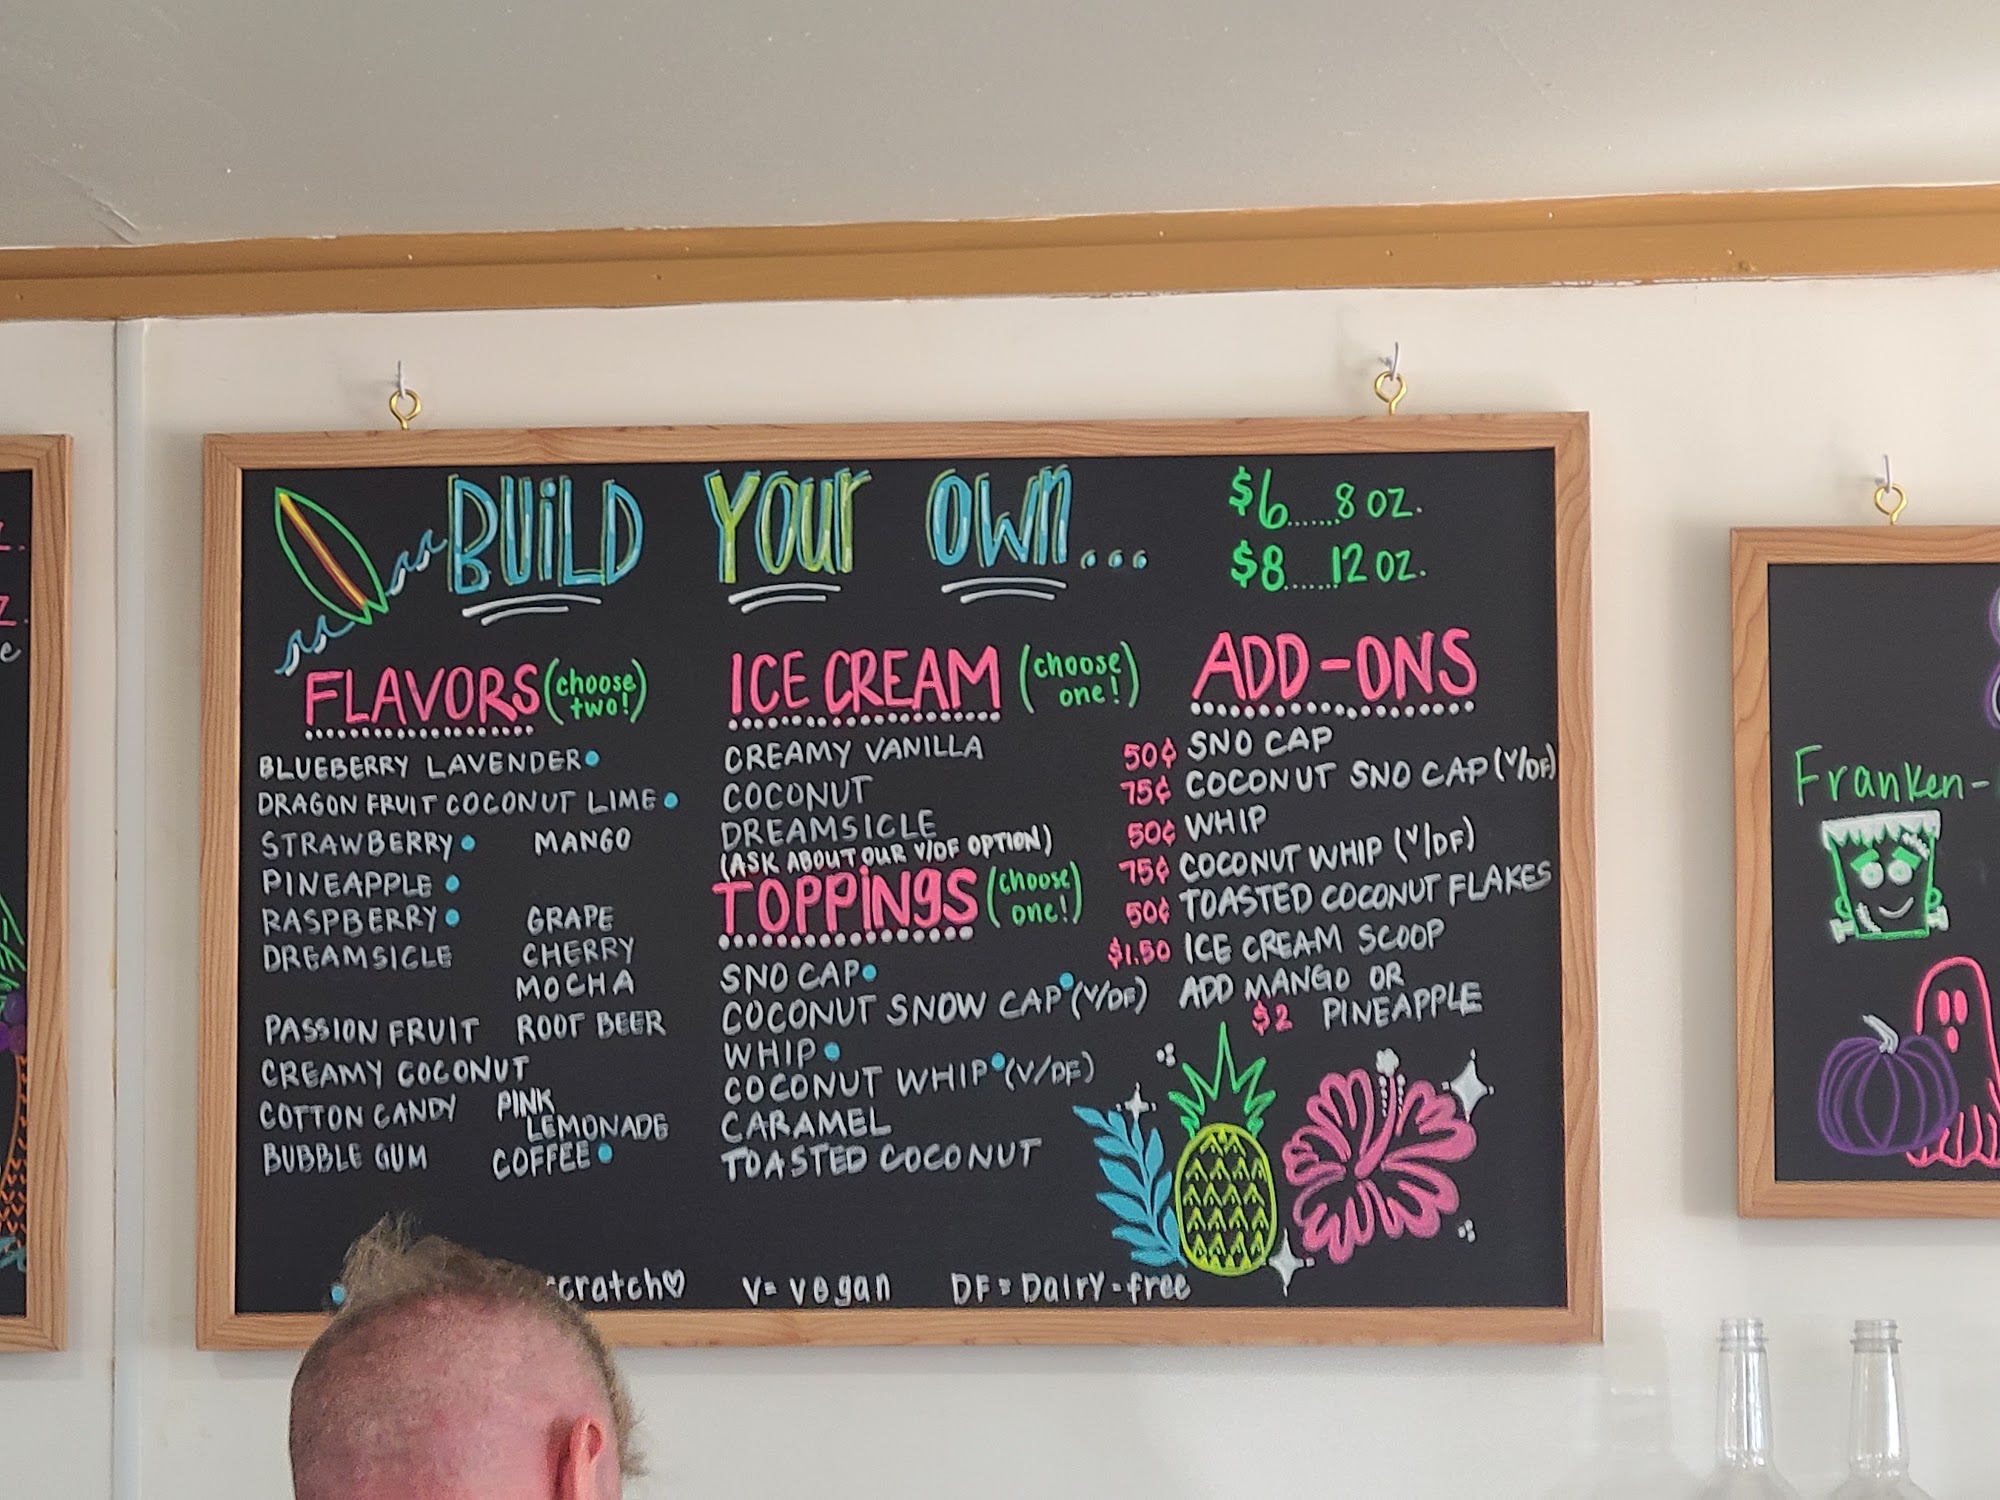 BUILD YOUR OWN...
$6.......8 OZ.
$8......12 OZ.
FLAVORS (choose two!)
BLUEBERRY LAVENDER
DRAGON FRUIT COCONUT LIME
STRAWBERRY MANGO
PINEAPPLE
RASPBERRY GRAPE
DREAMSICLE CHERRY
MOCHA
PASSION FRUIT ROOT BEER
CREAMY COCONUT
COTTON CANDY PINK
LEMONADE
BUBBLE GUM COFFEE
ICE CREAM (choose one!)
CREAMY VANILLA
COCONUT
DREAMSICLE
(ASK ABOUT OUR V/DF OPTION)
TOPPINGS (choose one!)
SNO CAP
COCONUT SNOW CAP (V/DF)
WHIP
COCONUT WHIP (V/DF)
CARAMEL
TOASTED COCONUT
ADD-ONS
50¢ SNO CAP
75¢ COCONUT SNO CAP (V/DF)
50¢ WHIP
75¢ COCONUT WHIP (V/DF)
50¢ TOASTED COCONUT FLAKES
$1.50 ICE CREAM SCOOP
ADD MANGO OR
$2 PINEAPPLE
V= vegan DF = Dairy-free
Franken-